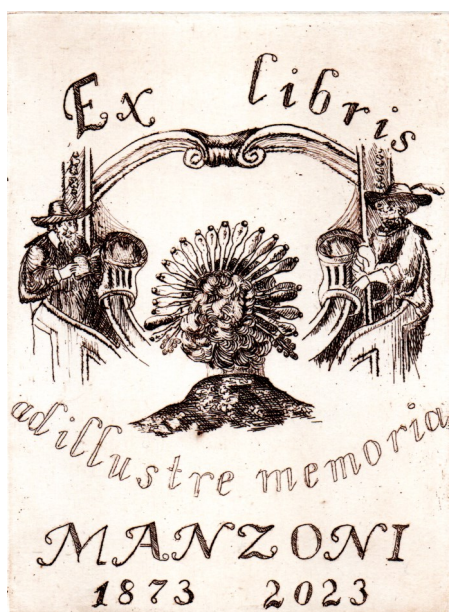 Ex libris
ad illustre memoria
MANZONI
1873 2023